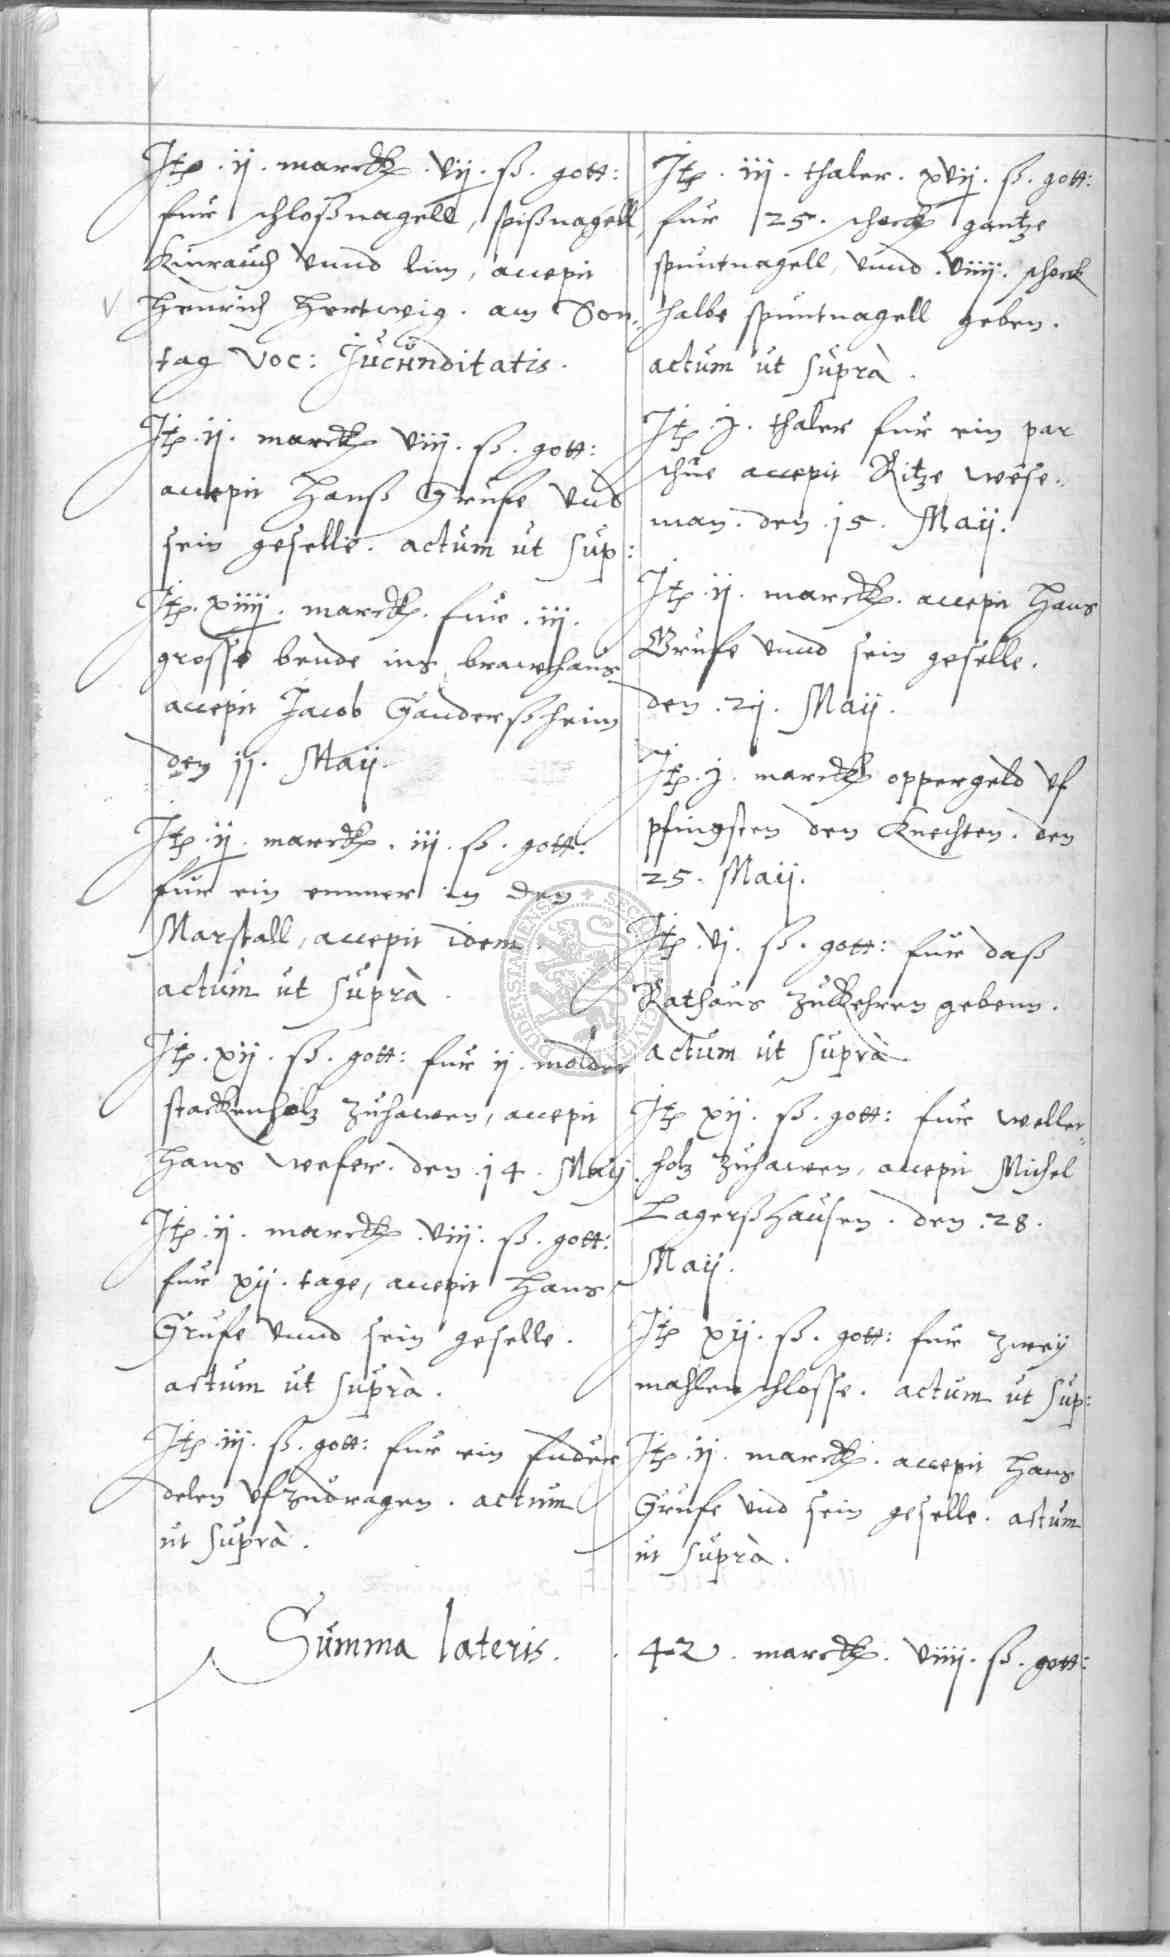 Itɫ. ij. marckɫ. vij. ß. gott:
fur schloßnagell, spißnagell,
Kinrauch vnnd lim, accepit
Henrich Hertwig. am Son-
tag Voc: Jucunditatis.
Itɫ. ij. marckɫ viij. ß. gott:
accepit Hanß Grufe vnd
sein geselle. actum ut sup:
Itɫ. xiiij. marckɫ. fur. iij.
grosse bende ins brawhaus
accepit Jacob Gandersheim
den 11. Maij.
Itɫ. ij. marckɫ. iij. ß. gott:
fur ein emmer in den
Marstall, accepit idem.
actum ut suprà.
Itɫ. xij. ß. gott: fur ij. molder
stackenholtz zuhawen, accepit
Hans Wefer. den 14. Maij
Itɫ. ij. marckɫ. viij. ß. gott:
fur xij. tage, accepit Hans
Grufe vnnd sein geselle.
actum ut suprà.
Itɫ. iij. ß. gott: fur ein fuder
delen vfzudragen. actum
ut suprà.
Itɫ. iij. thaler. xvij. ß. gott:
fur 25. schock gantze
spuntnagell, vnnd. viiij. schock
halbe spuntnagell geben.
actum ut suprà.
Itɫ. j. thaler fur ein par
schue accepit Ritze Wese-
man. den 15. Maij.
Itɫ. ij. marckɫ. accepit Hans
Grufe vnnd sein geselle.
den. 21. Maij.
Itɫ. j. marckɫ oppergeld vf
pfingsten den Knechten. den
25. Maij.
Itɫ. vj. ß. gott: fur daß
Rathaus zukehren gebenn.
actum ut suprà
Itɫ xij. ß. gott: fur weller-
holtz zuhawen, accepit Michel
Lagerßhausen. den. 28.
Maij.
Itɫ xij. ß. gott: fur zweij
mahlenschlosse. actum ut sup:
Itɫ. ij. marckɫ. accepit Hans
Grufe vnd sein geselle. actum
ut suprà.
Summa lateris. 42. marckɫ. viiij. ß. gott: